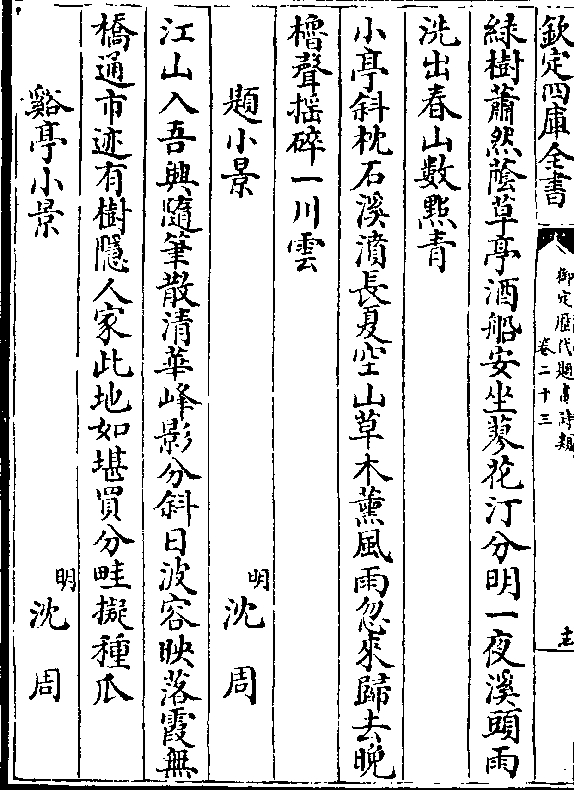 欽定四庫全書
御定歴代題畫詩類
卷二十三
綠樹蕭然蔭草亭酒船安坐蓼花汀分明一夜溪頭雨
洗出春山數㸃青
小亭斜枕石溪濆長夏空山草木薰風雨忽來歸去晚
櫓聲揺碎一川雲
題小景
明
沈周
江山入吾興隨筆散清華峰影分斜日波容映落霞無
橋通市迹有樹隱人家此地如堪買分畦擬種瓜
谿亭小景
明
沈周